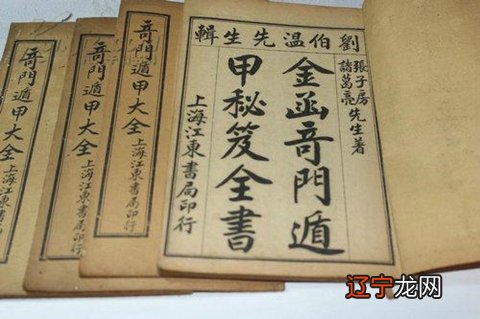 劉伯温先生輯
張子房
諸葛亮先生著
金函竒門遁
甲秘笈全書
上海江東書局印行
竒門遁甲大全
上海江東書局印行
竒門遁甲大全
上海江東書局印行
竒門遁甲大全
上海江東書局印行
辽宁龙网